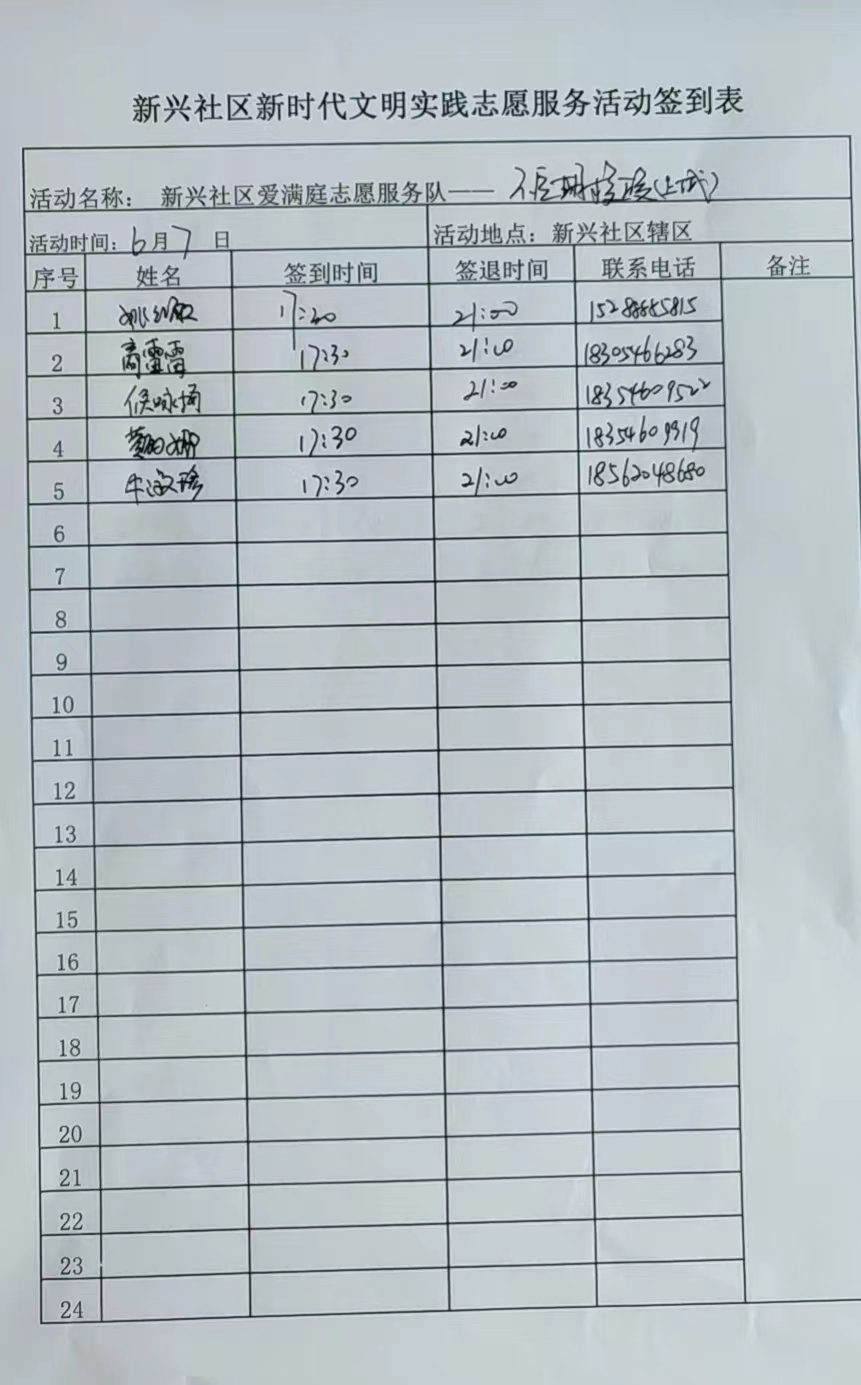 新兴社区新时代文明实践志愿服务活动签到表
活动名称： 新兴社区爱满庭志愿服务队——
活动时间：6月7日 活动地点：新兴社区辖区
序号 姓名 签到时间 签退时间 联系电话 备注
1 17:30 21:00
2 高雷雷 17:30 21:00 18305466283
3 17:30 21:00 18354609522
4 17:30 21:00 18354609319
5 17:30 21:00 18562048680
6
7
8
9
10
11
12
13
14
15
16
17
18
19
20
21
22
23
24